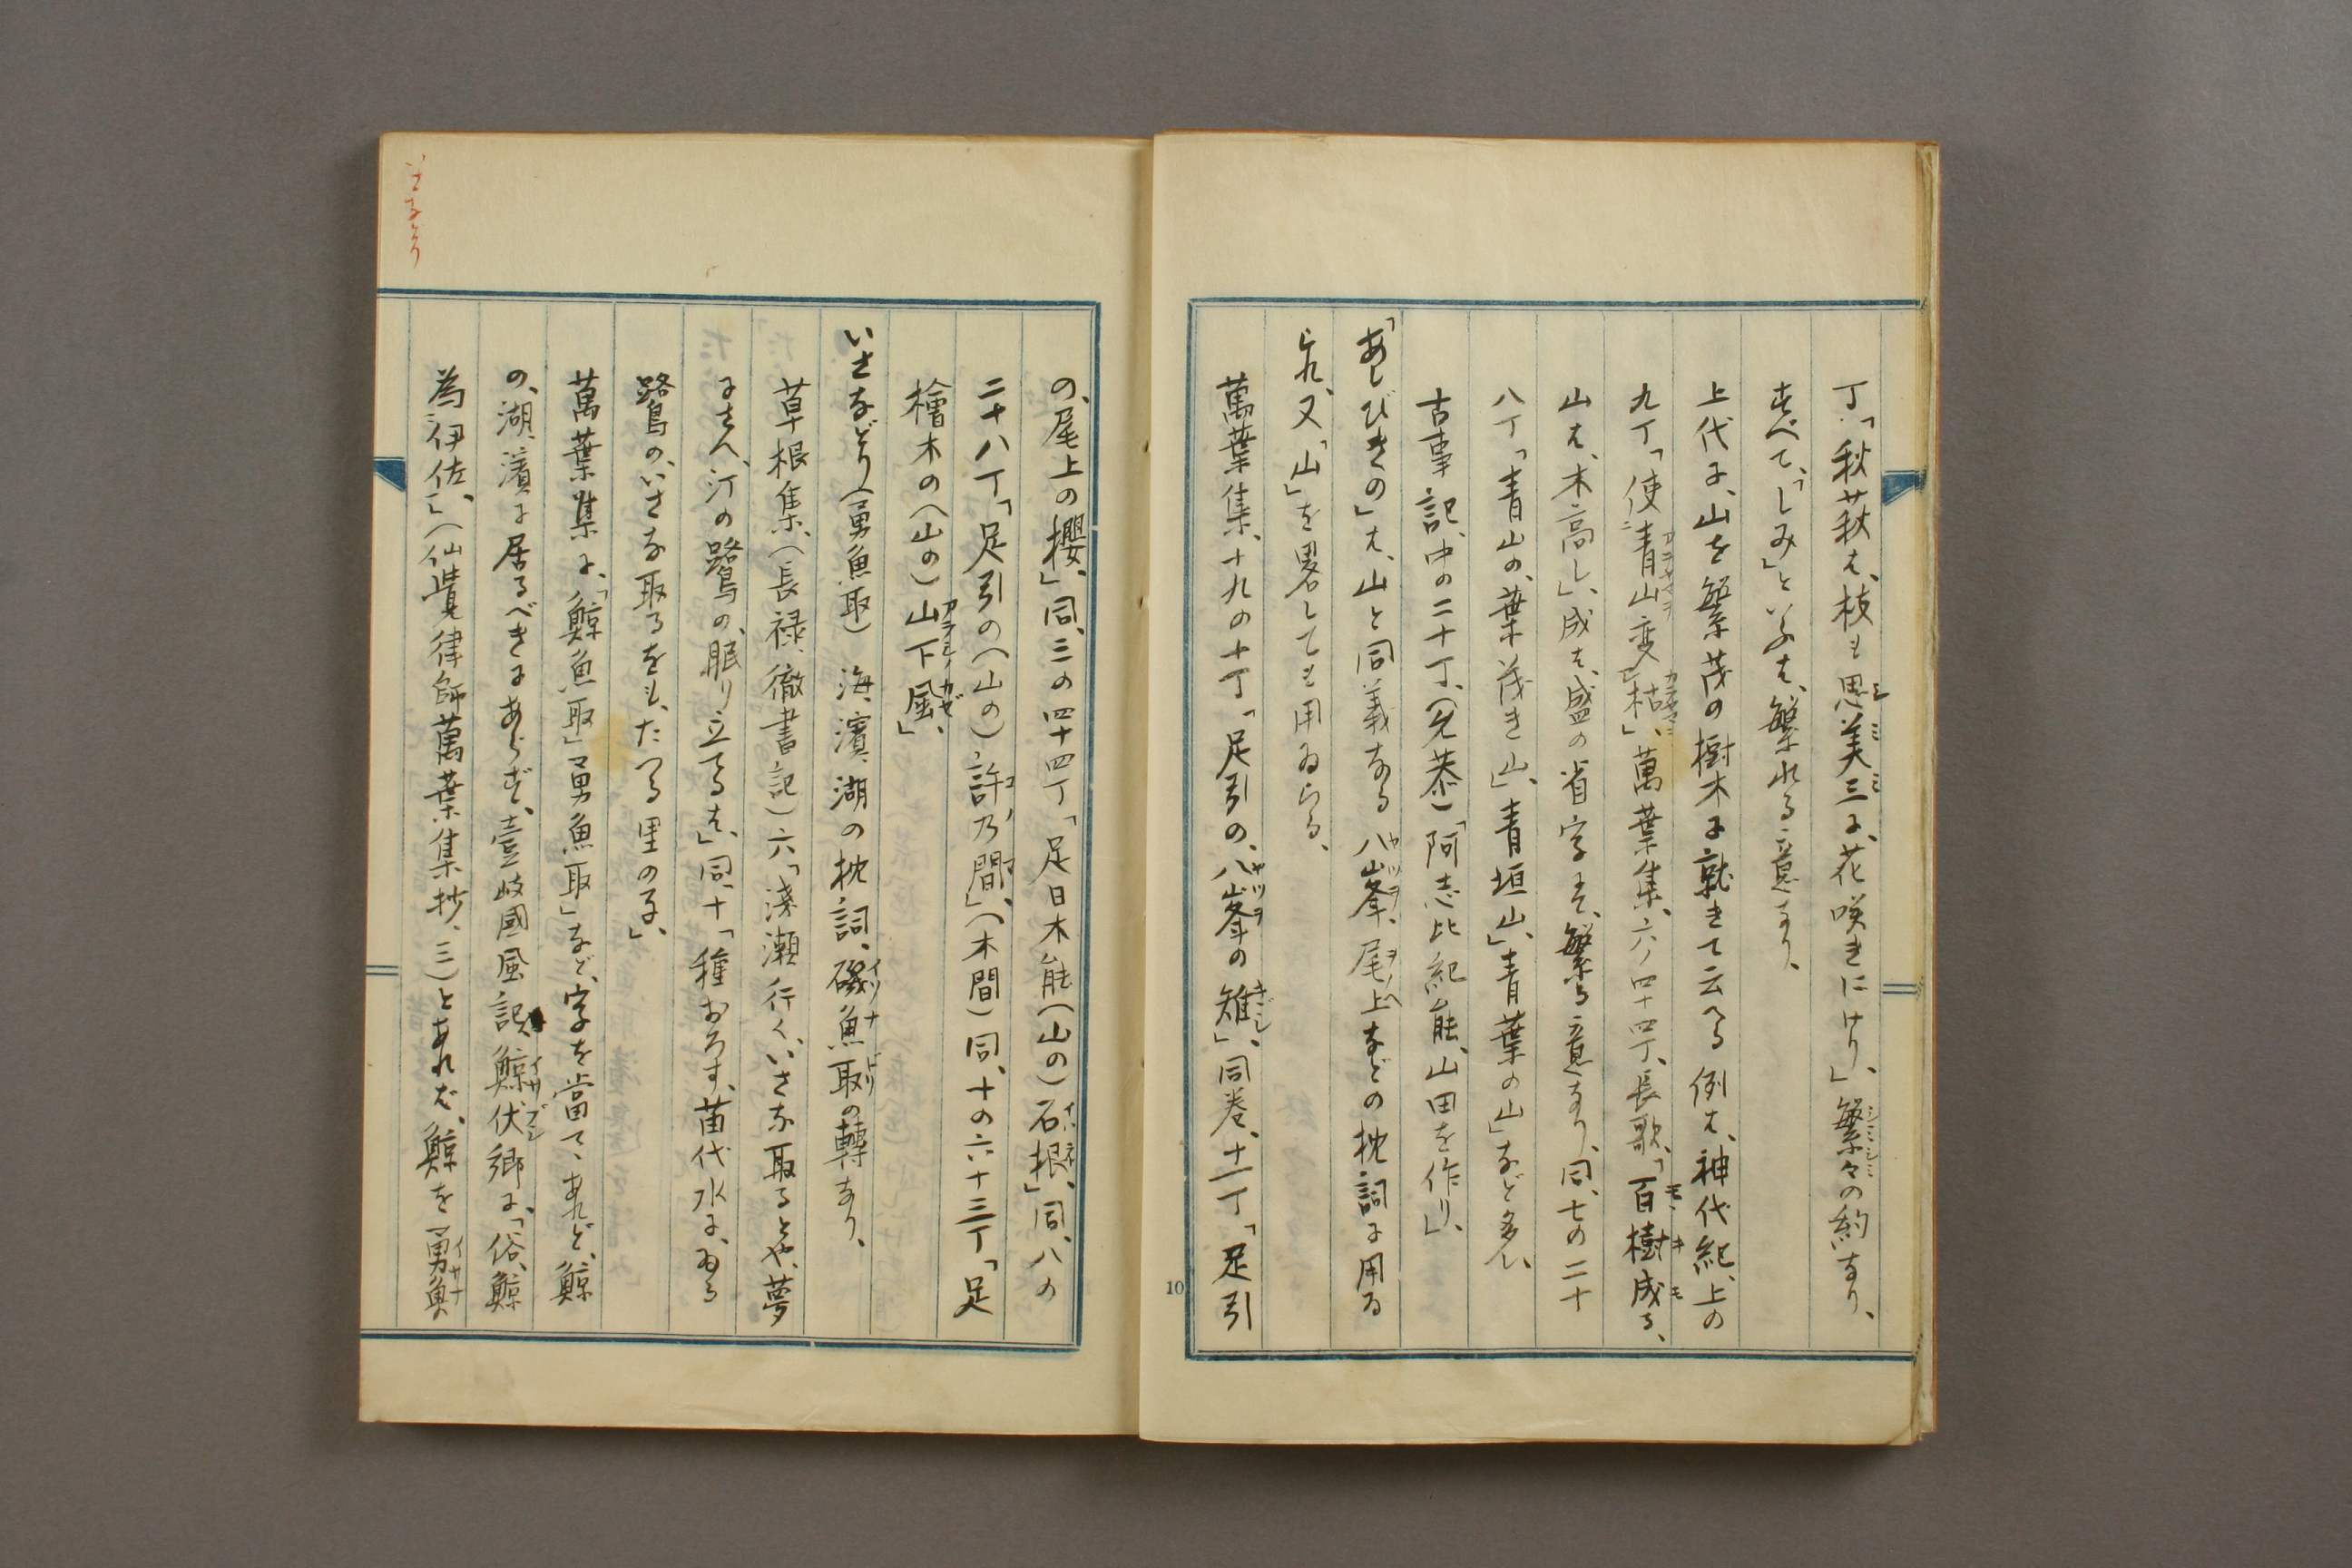 丁「秋萩は、枝も思美三に、花咲きにけり」、繁々の約なり、
すべて、「しみ」といふは、繁れる意なり、
上代に、山を繁茂の樹木に就きて云へる例は、神代紀、上の
九丁「使青山変枯」、萬葉集、六ノ四十四丁、長歌、「百樹成る、
山は、木高し」、成は、盛の省字にて、繁る意なり、同、七の二十
八丁「青山の、葉茂き山」、「青垣山」、青葉の山」など多し、
古事記、中の二十丁、(允恭)「阿志比紀能、山田を作り」、
「あしびきの」は、山と同義なる八峯、尾上などの枕詞に用ゐ
られ、又、「山」を畧しても用ゐらる、
萬葉集、十九の十丁「足引の、八峯の雉」、同巻、十一丁「足引
の、尾上の櫻」、同、三の四十四丁「足日木能(山の)石根」、同、八の
二十八丁「足引の(山の)、許乃間」、(木間)同、十の六十三丁「足
檜木の(山の)山下風」、
いさなどり(勇魚取) 海、濱、湖の枕詞、磯魚取の轉なり、
草根集、(長禄、徹書記)六「淺瀬行く、いさな取るとや、夢
にさへ、汀の鷺の、眠り立てるは」、同、十「種おろす、苗代水に、ゐる
鷺の、いさな取るをも、たつる里の子」、
萬葉集に、「鯨魚取」「勇魚取」など、字を當て、あれど、鯨
の、湖、濱に居るべきにあらず、壹岐國風記、鯨伏郷に、「俗、鯨
為伊佐」、(仙覺律師萬葉集抄、三)とあれば、鯨を「勇魚
いさなとり
10